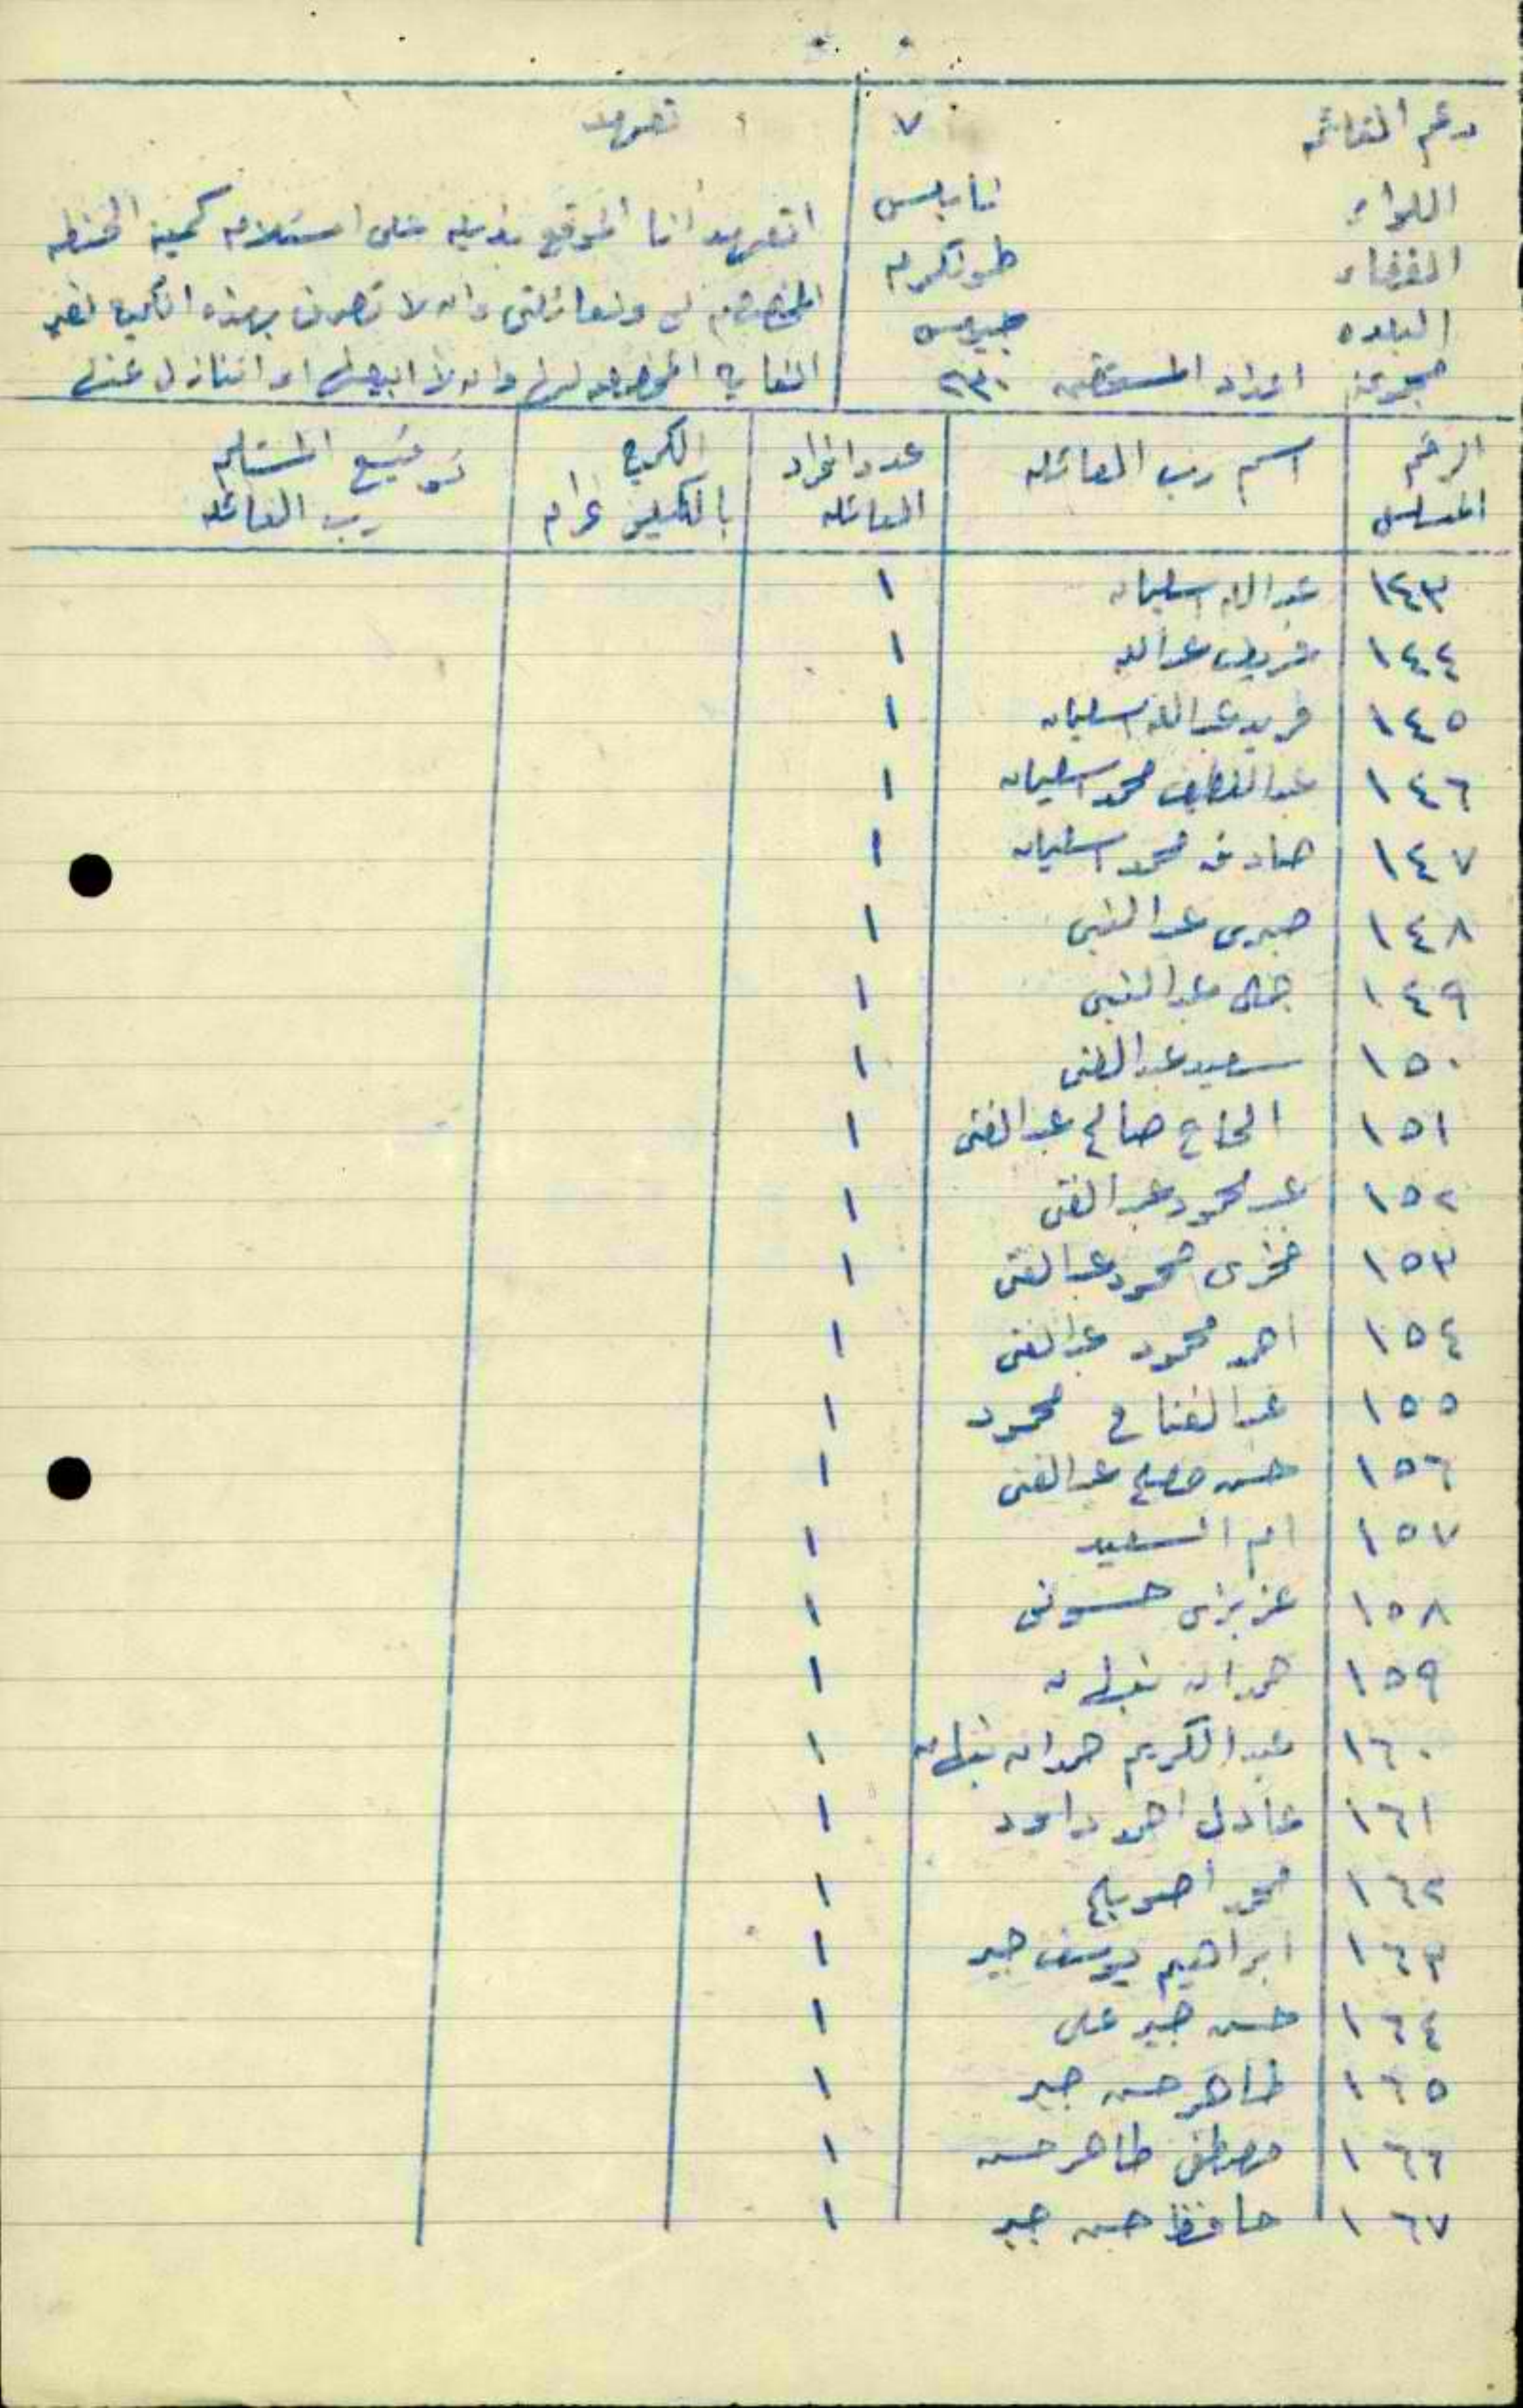 رقم القائمه ٧ تعهد
اللواء نابلس
القضاء طولكرم
البلده جيوس
مجموعة افراد المستحقين ٢٣٠
اتعهد انا الموقع بذيله على استلام كمية الحنطه
المخصصه لي ولعائلتي وان لا تصرف بهذه الكميه لغير
الغايه المخصصه لها وان لا ابيعها او اتنازل عنها
الرقم المسلسل اسم رب العائله عدد افراد العائله الكميه بالكيلو غرام توقيع المستلم رب العائله
١٤٣ عبدالله سليمان ١
١٤٤ شريف عبدالله ١
١٤٥ فريد عبدالله سليمان ١
١٤٦ عبداللطيف محمد سليمان ١
١٤٧ صادق محمد سليمان ١
١٤٨ صبري عبد الغني ١
١٤٩ جمال عبد الغني ١
١٥٠ سعيد عبد الغني ١
١٥١ الحاج صالح عبد الغني ١
١٥٢ عبد محمود عبد الغني ١
١٥٣ فخري محمود عبد الغني ١
١٥٤ احمد محمود عبد الغني ١
١٥٥ عبد الفتاح محمود ١
١٥٦ حسن صالح عبد الغني ١
١٥٧ ام السعيد ١
١٥٨ عزيزه حسونه ١
١٥٩ حمدان نبهان ١
١٦٠ عبد الكريم حمدان نبهان ١
١٦١ عادل احمد داود ١
١٦٢ محمد اصويلح ١
١٦٣ ابراهيم يوسف جبر ١
١٦٤ حسن جبر علي ١
١٦٥ طاهر حسن جبر ١
١٦٦ مصطفى طاهر حسن ١
١٦٧ حافظ حسن جبر ١